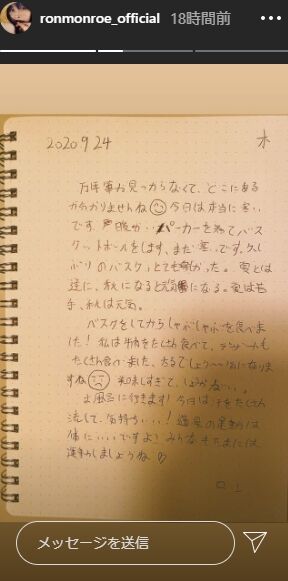 ronmonroe_official 18時間前
2020 9 24 木
万年筆が見つからなくて、どこにある
かわかりませんね 今日は本当に寒い
です。 パーカーを着てバス
ケットボールをします、まだ寒いです。久し
ぶりのバスケ、とても楽しかった。夏とは
逆に、秋になると元気になる。夏は苦
手、秋は元気。
バスケをしてからしゃぶしゃぶを食べま
した！私は牛肉をたくさん食べて、デザートも
たくさん食べました、太るでしょう〜になりま
すね 美味しすぎて、しょうがない...
お風呂に行きます！今日は汗をたくさん
流して、気持ちいい..！週末の運動は
体にいいですよ！みなもたまには
運動しましょうね
ロン
メッセージを送信